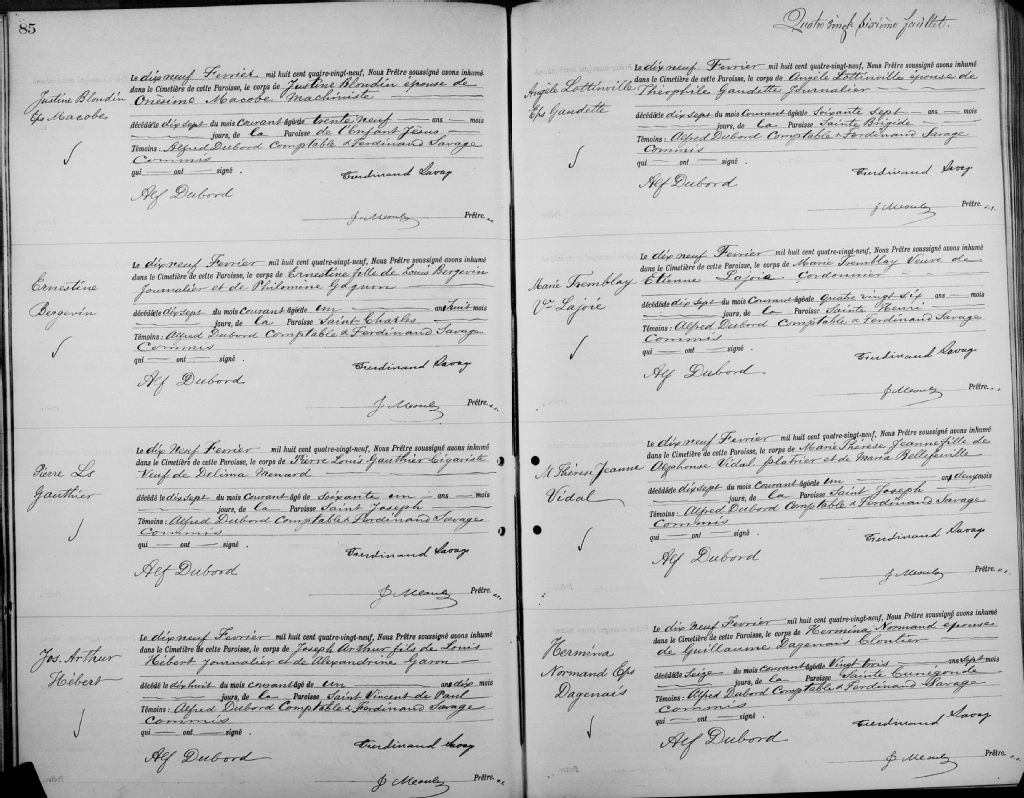 85
Justine Blondin
Eps Macobe
Le dix neuf Fevrier mil huit cent quatre-vingt-neuf, Nous Prêtre soussigné avons inhumé
dans le Cimetière de cette Paroisse, le corps de Justine Blondin epouse de
Onesime Macobe Machiniste
décédée le dix sept du mois Courant âgée de trente neuf ans — mois
— jours, de la Paroisse de l'Enfant Jesus
Témoins : Alfred Dubord Comptable & Ferdinand Savage
Commis
qui — ont — signé .
Ferdinand Savage
Alf Dubord
Prêtre.
Ernestine
Bergevin
Le dix neuf Fevrier mil huit cent quatre-vingt-neuf, Nous Prêtre soussigné avons inhumé
dans le Cimetière de cette Paroisse, le corps de Ernestine fille de Louis Bergevin
Journalier et de Philomine Gagnon
décédée le dix sept du mois Courant âgée de un ans huit mois
— jours, de la Paroisse Saint Charles
Témoins : Alfred Dubord Comptable & Ferdinand Savage
Commis
qui — ont — signé .
Ferdinand Savage
Alf Dubord
Prêtre.
Pierre Ls
Gauthier
Le dix Neuf Fevrier mil huit cent quatre-vingt-neuf, Nous Prêtre soussigné avons inhumé
dans le Cimetière de cette Paroisse, le corps de Pierre Louis Gauthier Cigariste
Veuf de Delima Menard
décédé le dix sept du mois Courant âgé de Soixante un ans — mois
— jours, de la Paroisse Saint Joseph
Témoins : Alfred Dubord Comptable & Ferdinand Savage
Commis
qui — ont — signé .
Ferdinand Savage
Alf Dubord
Prêtre.
Jos. Arthur
Hébert
Le dix neuf Fevrier mil huit cent quatre-vingt-neuf, Nous Prêtre soussigné avons inhumé
dans le Cimetière de cette Paroisse, le corps de Joseph Arthur fils de Louis
Hébert Journalier et de Alexandrine Garon
décédé le dix huit du mois courant âgé de un ans dix mois
— jours, de la Paroisse Saint Vincent de Paul
Témoins : Alfred Dubord Comptable & Ferdinand Savage
Commis
qui — ont — signé .
Ferdinand Savage
Alf Dubord
Prêtre.
Quatre vingt sixième feuillet.
Angèle Lottinville
Eps Gaudette
Le dix neuf Fevrier mil huit cent quatre-vingt-neuf, Nous Prêtre soussigné avons inhumé
dans le Cimetière de cette Paroisse, le corps de Angèle Lottinville epouse de
Théophile Gaudette Journalier
décédée le dix sept du mois Courant âgée de Soixante Sept ans — mois
— jours, de la Paroisse Sainte Brigide
Témoins : Alfred Dubord Comptable & Ferdinand Savage
Commis
qui — ont — signé .
Ferdinand Savage
Alf Dubord
Prêtre.
Marie Tremblay
Ve Lajoie
Le dix neuf Fevrier mil huit cent quatre-vingt-neuf, Nous Prêtre soussigné avons inhumé
dans le Cimetière de cette Paroisse, le corps de Marie Tremblay Veuve de
Etienne Lajoie Cordonnier
décédée le dix sept du mois Courant âgée de quatre vingt six ans — mois
— jours, de la Paroisse Sainte Henri
Témoins : Alfred Dubord Comptable & Ferdinand Savage
Commis
qui — ont — signé .
Ferdinand Savage
Alf Dubord
Prêtre.
M Thérèse Jeanne
Vidal
Le dix neuf Fevrier mil huit cent quatre-vingt-neuf, Nous Prêtre soussigné avons inhumé
dans le Cimetière de cette Paroisse, le corps de Marie Thérèse Jeanne fille de
Alphonse Vidal platrier et de Maria Bellefeuille
décédée le dix sept du mois Courant âgée de un ans deux mois
— jours, de la Paroisse Saint Joseph
Témoins : Alfred Dubord Comptable & Ferdinand Savage
Commis
qui — ont — signé .
Ferdinand Savage
Alf Dubord
Prêtre.
Hermina
Normand Eps
Dagenais
Le dix neuf Fevrier mil huit cent quatre-vingt-neuf, Nous Prêtre soussigné avons inhumé
dans le Cimetière de cette Paroisse, le corps de Hermina Normand epouse
de Guillaume Dagenais Cloutier
décédée le Seize du mois courant âgée de Vingt trois ans sept mois
— jours, de la Paroisse Sainte Cunégonde
Témoins : Alfred Dubord Comptable & Ferdinand Savage
Commis
qui — ont — signé .
Ferdinand Savage
Alf Dubord
Prêtre.